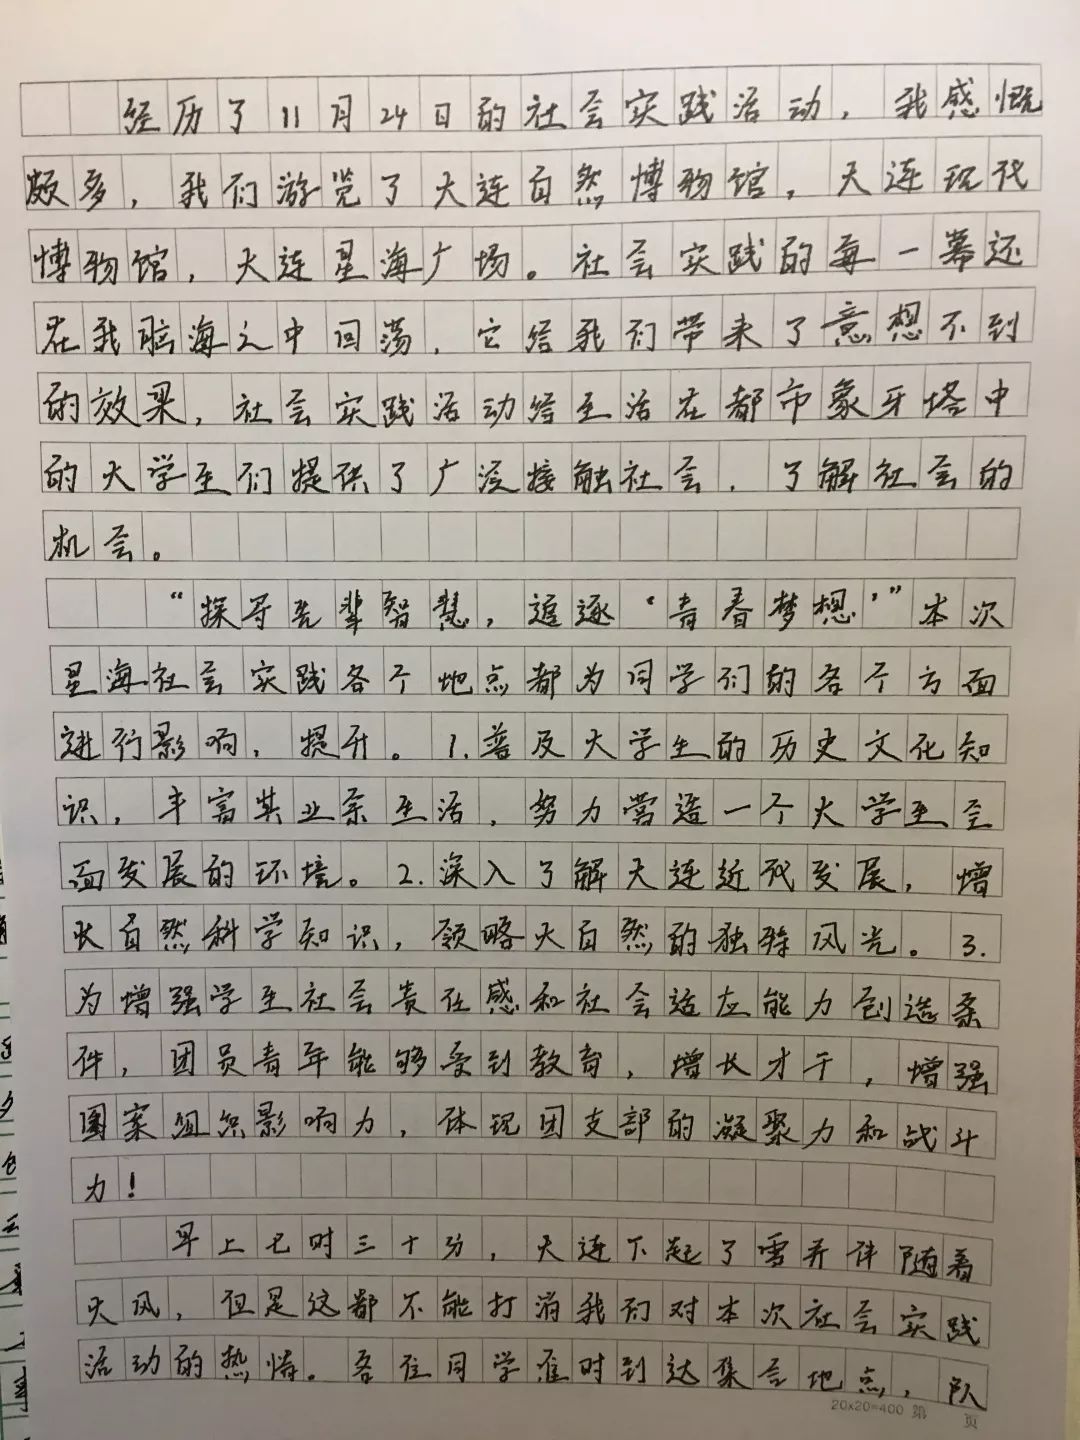 经历了11月24日的社会实践活动，我感慨
颇多，我们游览了大连自然博物馆，大连现代
博物馆，大连星海广场。社会实践的每一幕还
在我脑海之中回荡，它给我们带来了意想不到
的效果，社会实践活动给生活在都市象牙塔中
的大学生们提供了广泛接触社会，了解社会的
机会。
“探寻先辈智慧，追逐‘青春梦想’”本次
星海社会实践各个地点都为同学们的各个方面
进行影响，提升。1.普及大学生的历史文化知
识，丰富其业余生活，努力营造一个大学生全
面发展的环境。2.深入了解大连近代发展，增
长自然科学知识，领略大自然的独特风光。3.
为增强学生社会责任感和社会适应能力创造条
件，团员青年能够受到教育，增长才干，增强
团案组织影响力，体现团支部的凝聚力和战斗
力！
早上七时三十分，大连下起了雪并伴随着
大风，但是这都不能打消我们对本次社会实践
活动的热情。各位同学准时到达集合地点，队
20×20=400 第 页